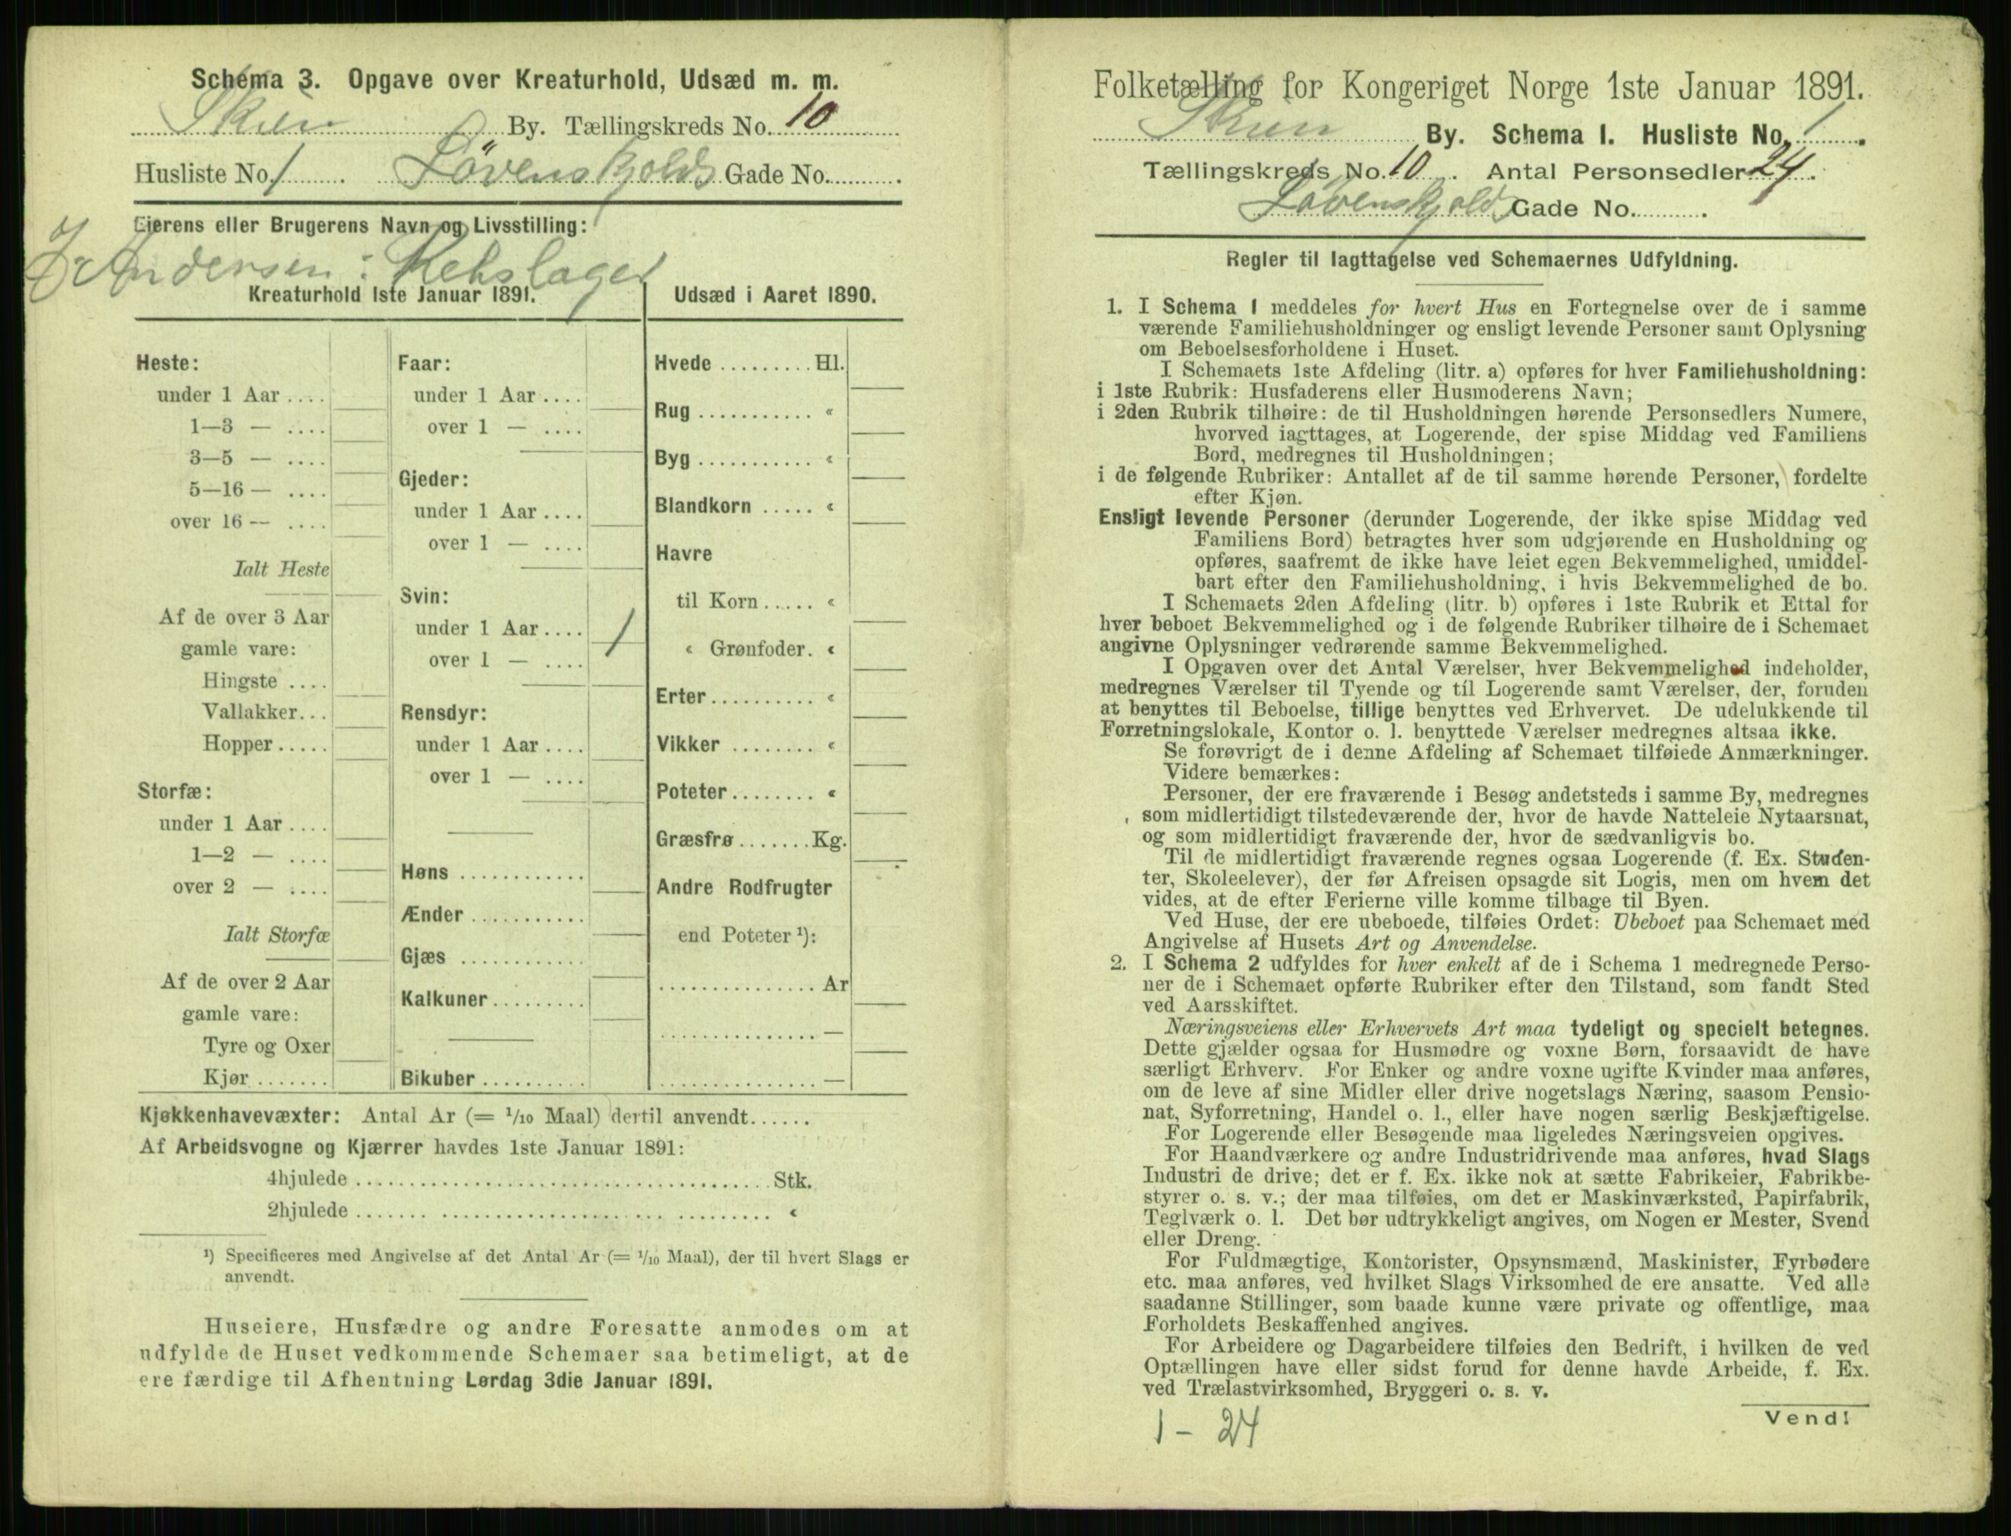 Schema 3. Opgave over Kreaturhold, Udsæd m. m.
Skien By. Tællingskreds No. 10
Husliste No. 1 Løvenskjolds Gade No.
Eierens eller Brugerens Navn og Livsstilling:
Andersen:
Kreaturhold 1ste Januar 1891.
Heste:
under 1 Aar
1—3 —
3—5 —
5—16 —
over 16 —
Ialt Heste
Af de over 3 Aar
gamle vare:
Hingste
Vallakker
Hopper
Storfæ:
under 1 Aar
1—2 —
over 2 —
Ialt Storfæ
Af de over 2 Aar
gamle vare:
Tyre og Oxer
Kjør
Faar:
under 1 Aar
over 1 —
Gjeder:
under 1 Aar
over 1 —
Svin:
under 1 Aar 1
over 1 —
Rensdyr:
under 1 Aar
over 1 —
Høns
Ænder
Gjæs
Kalkuner
Bikuber
Udsæd i Aaret 1890.
Hvede Hl.
Rug «
Byg «
Blandkorn «
Havre
til Korn «
« Grønfoder. «
Erter «
Vikker «
Poteter «
Græsfrø Kg.
Andre Rodfrugter
end Poteter ¹):
Ar
—
—
Kjøkkenhavevæxter: Antal Ar (= 1/10 Maal) dertil anvendt
Af Arbeidsvogne og Kjærrer havdes 1ste Januar 1891:
4hjulede Stk.
2hjulede «
¹) Specificeres med Angivelse af det Antal Ar (= 1/10 Maal), der til hvert Slags er
anvendt.
Huseiere, Husfædre og andre Foresatte anmodes om at
udfylde de Huset vedkommende Schemaer saa betimeligt, at de
ere færdige til Afhentning Lørdag 3die Januar 1891.
Folketælling for Kongeriget Norge 1ste Januar 1891.
Skien By. Schema I. Husliste No. 1
Tællingskreds No. 10. Antal Personsedler 24.
Løvenskjolds Gade No.
Regler til Iagttagelse ved Schemaernes Udfyldning.
1. I Schema I meddeles for hvert Hus en Fortegnelse over de i samme
værende Familiehusholdninger og ensligt levende Personer samt Oplysning
om Beboelsesforholdene i Huset.
I Schemaets 1ste Afdeling (litr. a) opføres for hver Familiehusholdning:
i 1ste Rubrik: Husfaderens eller Husmoderens Navn;
i 2den Rubrik tilhøire: de til Husholdningen hørende Personsedlers Numere,
hvorved iagttages, at Logerende, der spise Middag ved Familiens
Bord, medregnes til Husholdningen;
i de følgende Rubriker: Antallet af de til samme hørende Personer, fordelte
efter Kjøn.
Ensligt levende Personer (derunder Logerende, der ikke spise Middag ved
Familiens Bord) betragtes hver som udgjørende en Husholdning og
opføres, saafremt de ikke have leiet egen Bekvemmelighed, umiddel-
bart efter den Familiehusholdning, i hvis Bekvemmelighed de bo.
I Schemaets 2den Afdeling (litr. b) opføres i 1ste Rubrik et Ettal for
hver beboet Bekvemmelighed og i de følgende Rubriker tilhøire de i Schemaet
angivne Oplysninger vedrørende samme Bekvemmelighed.
I Opgaven over det Antal Værelser, hver Bekvemmelighed indeholder,
medregnes Værelser til Tyende og til Logerende samt Værelser, der, foruden
at benyttes til Beboelse, tillige benyttes ved Erhvervet. De udelukkende til
Forretningslokale, Kontor o. l. benyttede Værelser medregnes altsaa ikke.
Se forøvrigt de i denne Afdeling af Schemaet tilføiede Anmærkninger.
Videre bemærkes:
Personer, der ere fraværende i Besøg andetsteds i samme By, medregnes
som midlertidigt tilstedeværende der, hvor de havde Natteleie Nytaarsnat,
og som midlertidigt fraværende der, hvor de sædvanligvis bo.
Til de midlertidigt fraværende regnes ogsaa Logerende (f. Ex. Studen-
ter, Skoleelever), der før Afreisen opsagde sit Logis, men om hvem det
vides, at de efter Ferierne ville komme tilbage til Byen.
Ved Huse, der ere ubeboede, tilføies Ordet: Ubeboet paa Schemaet med
Angivelse af Husets Art og Anvendelse.
2. I Schema 2 udfyldes for hver enkelt af de i Schema 1 medregnede Perso-
ner de i Schemaet opførte Rubriker efter den Tilstand, som fandt Sted
ved Aarsskiftet.
Næringsveiens eller Erhvervets Art maa tydeligt og specielt betegnes.
Dette gjælder ogsaa for Husmødre og voxne Børn, forsaavidt de have
særligt Erhverv. For Enker og andre voxne ugifte Kvinder maa anføres,
om de leve af sine Midler eller drive nogetslags Næring, saasom Pensio-
nat, Syforretning, Handel o. l., eller have nogen særlig Beskjæftigelse.
For Logerende eller Besøgende maa ligeledes Næringsveien opgives.
For Haandværkere og andre Industridrivende maa anføres, hvad Slags
Industri de drive; det er f. Ex. ikke nok at sætte Fabrikeier, Fabrikbe-
styrer o. s. v.; der maa tilføies, om det er Maskinværksted, Papirfabrik,
Teglværk o. l. Det bør udtrykkeligt angives, om Nogen er Mester, Svend
eller Dreng.
For Fuldmægtige, Kontorister, Opsynsmænd, Maskinister, Fyrbødere
etc. maa anføres, ved hvilket Slags Virksomhed de ere ansatte. Ved alle
saadanne Stillinger, som baade kunne være private og offentlige, maa
Forholdets Beskaffenhed angives.
For Arbeidere og Dagarbeidere tilføies den Bedrift, i hvilken de ved
Optællingen have eller sidst forud for denne havde Arbeide, f. Ex.
ved Trælastvirksomhed, Bryggeri o. s. v.
Vend!
1 - 24